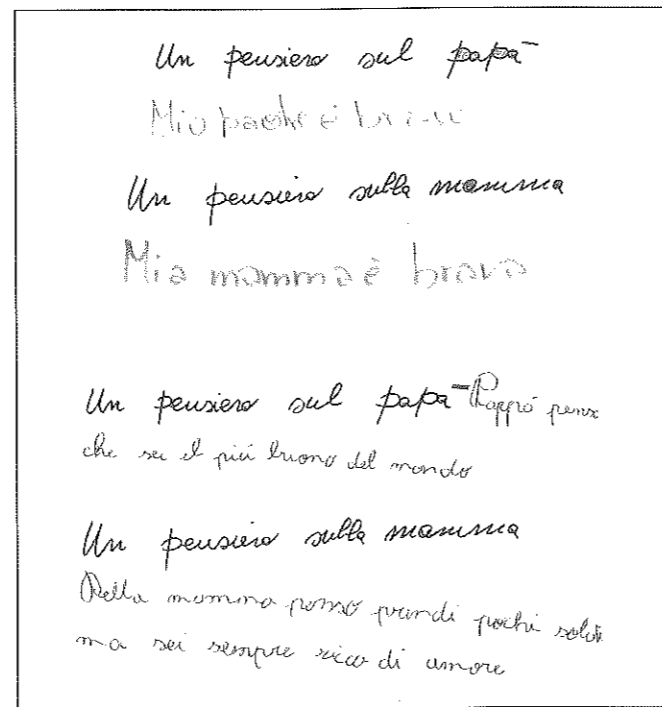 Un pensiero sul papà
Mio padre è bravo
Un pensiero sulla mamma
Mia mamma è brava
Un pensiero sul papà Pappó pens
che sei il più buono del mondo
Un pensiero sulla mamma
Della mamma penso prandi pochi soldi
ma sei sempre ricca di amore